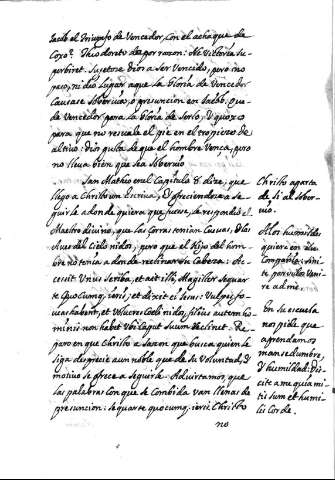 Jacob el triumpho de Vencedor, con el achaque de
Coxo? Theodoreto da por razon: Ne Victoria Su-
perbiret. Sujetose dios a ser Vencido, pero no
paso, ni dio lugar a que la Gloria de Vencedor
Causase Soberuia, o presuncion en Jacob. Que-
de Vencedor para la Gloria de Serlo, y coxo
para que no rescale el pie en el tropiezo de
altiuo: dios gusta de que el hombre Venca, pero
no lleva bien que sea Soberuio
San Matheo en el Capitulo 8 dize, que
llego a Christo un Escriua, ofreciendose a Se-
guirle a donde quiera que fuese, le respondio el
Maestro diuino, que las Zorras tenian Cueuas, y las
Aues del Cielo nidos; pero que el Hijo del hom-
bre no tenia a donde reclinar su Cabeza: Ac-
cessit Unus Scriba, et ait illi, Magister Sequar
te Quocumq, ieris, et dixit ei Iesus: Vulpes fo-
ueas habent, et Volucres Coeli nidos, filius autem ho-
minis non habet Vbi Caput Suum Reclinet. Re-
paro en que Christo
siga desprecie a un noble que de su Voluntad, y
motiuo se ofrece a Seguirle. Aduirtamos, que
las palabras Con que se Combida van llenas de
presuncion: sequar te quocumq, ieris. Christo
no
Christo aparta
de si al Sober-
uio.
A los humildes
quiere en su
Compañia: sini-
te paruulos Veni-
re ad me.
En su escuela
nos pide que
aprendamos
mansedumbre,
y humildad: Dis-
cite a me quia mi-
tis sum et humi-
lis Corde.